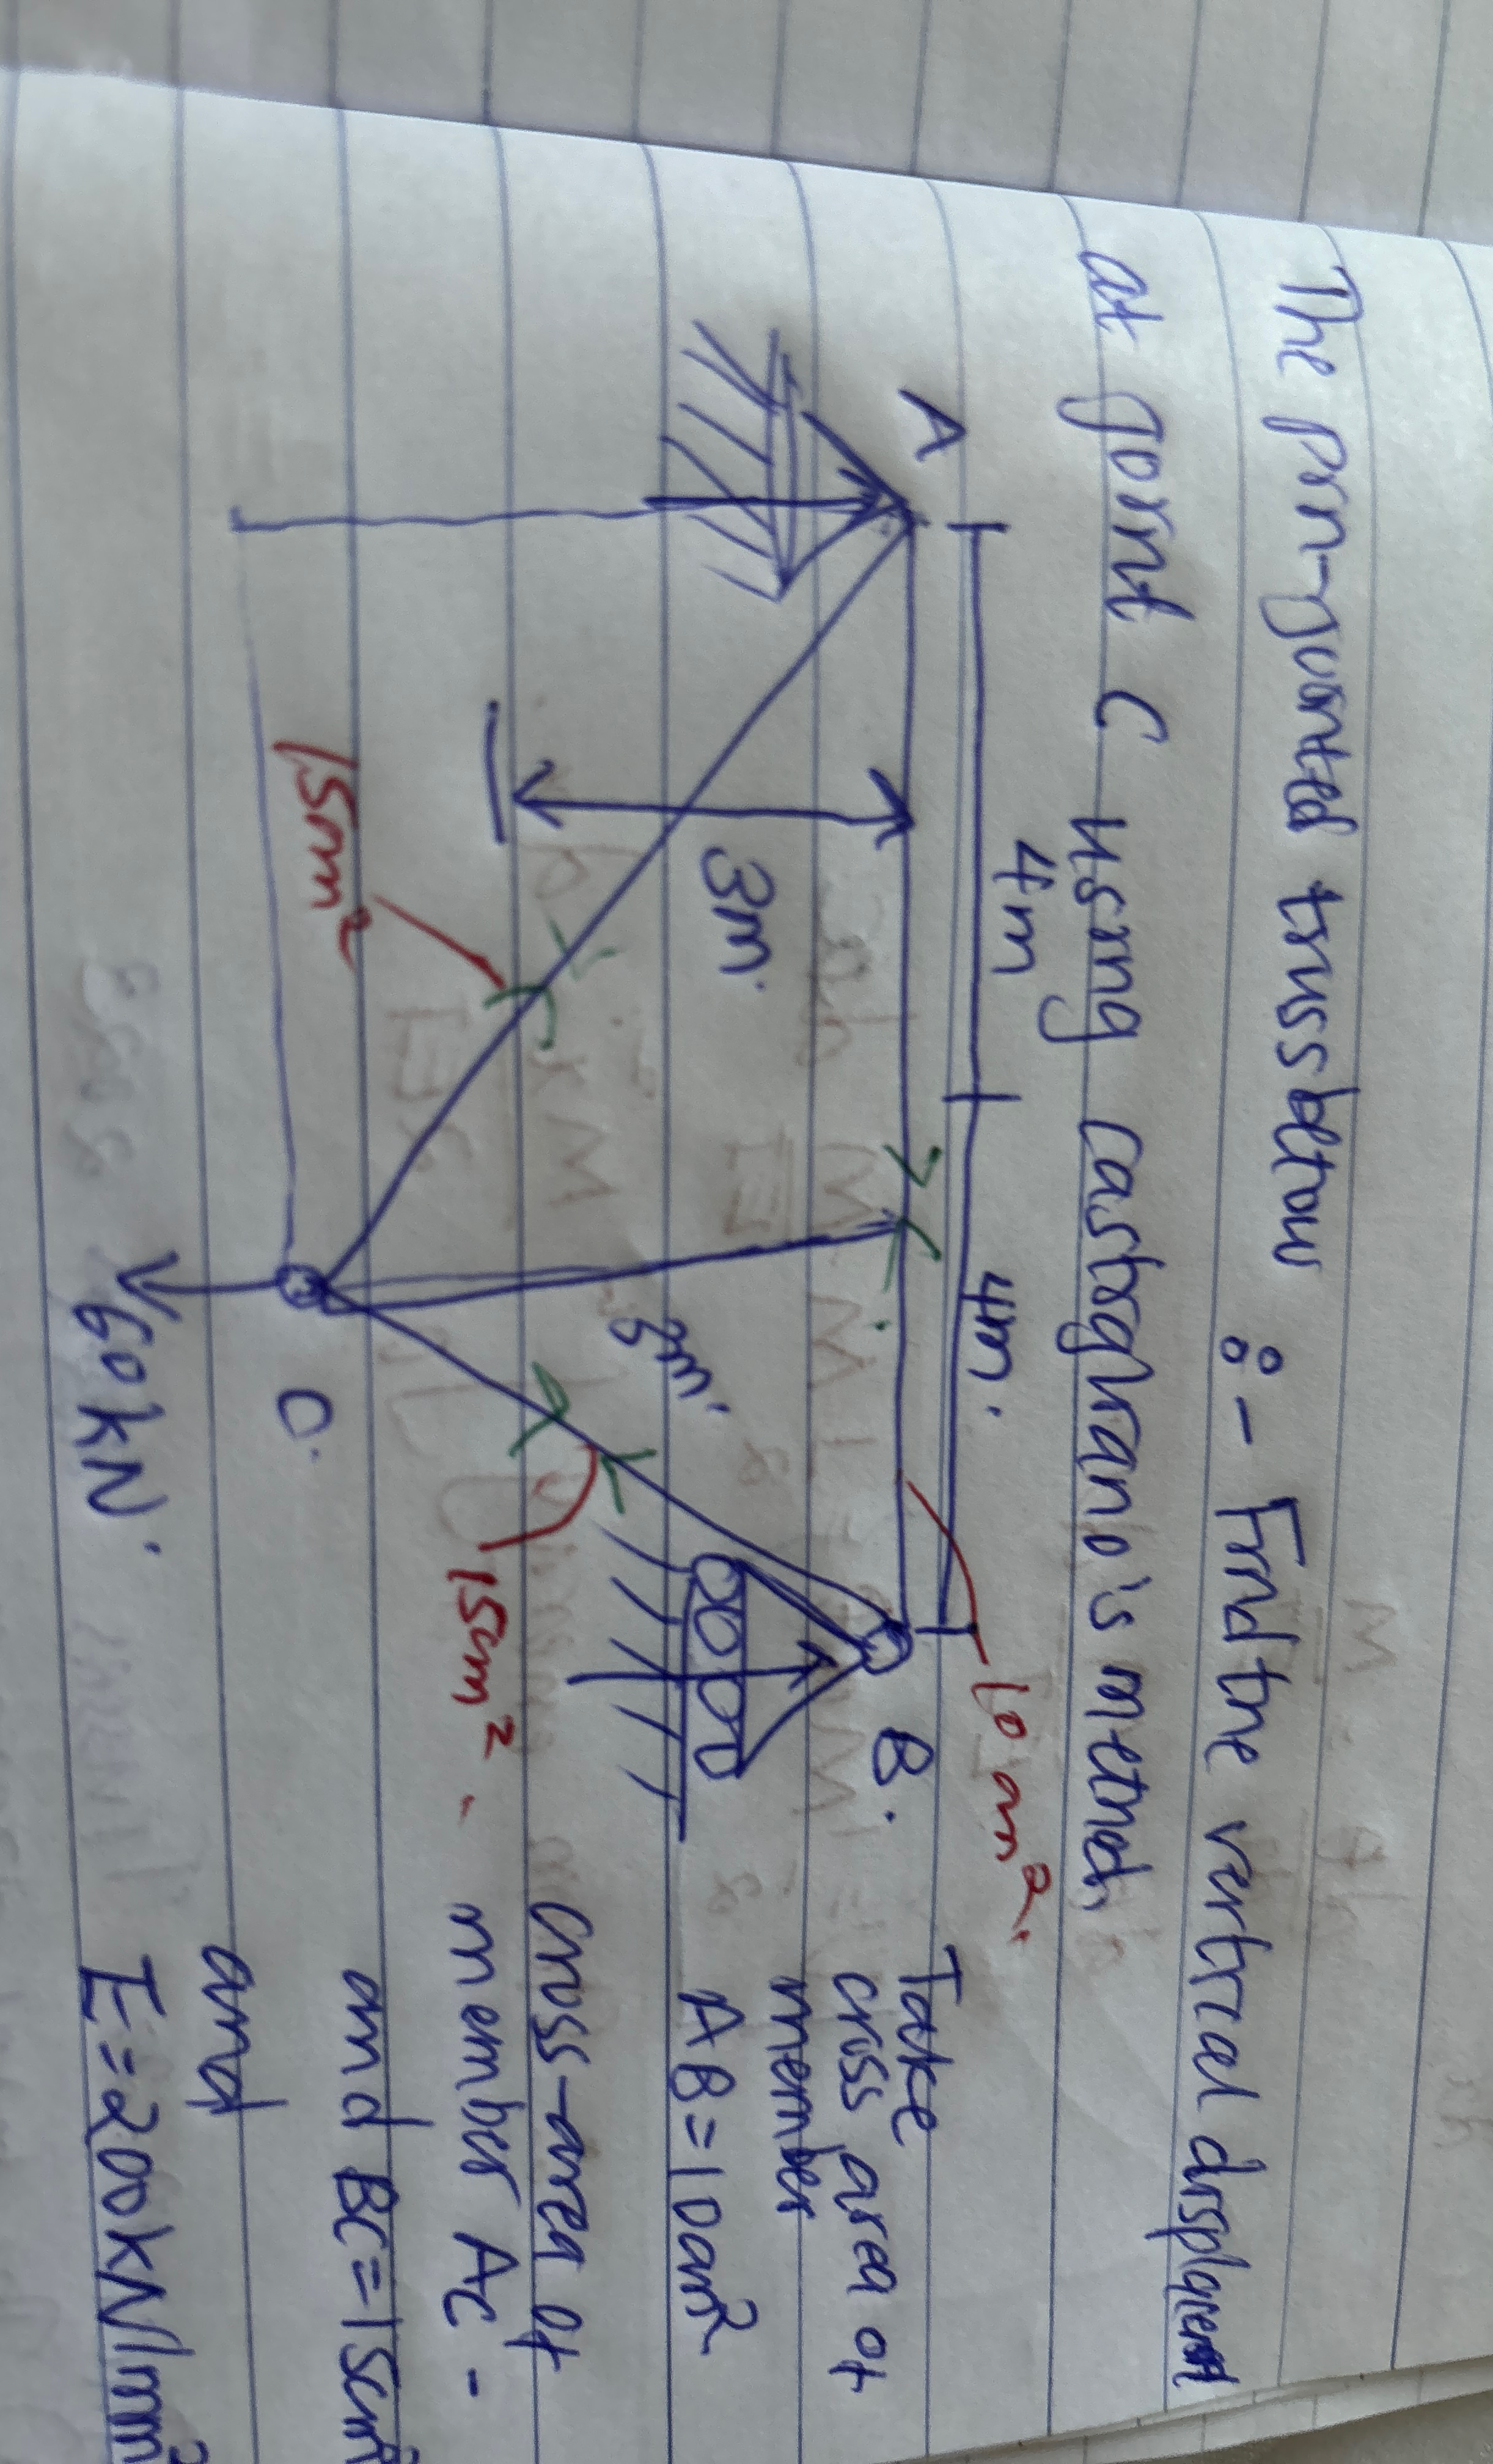 The pin-jointed truss below :- Find the vertical displacement
at joint C using castigliano's method.
4m
4m.
10 cm²
A
B.
3m.
3m.
15cm²
15cm².
C.
60kN.
Take
cross area of
member
AB = 10cm²
cross-area of
member AC -
and BC = 15cm²
and
E = 200kN/mm²